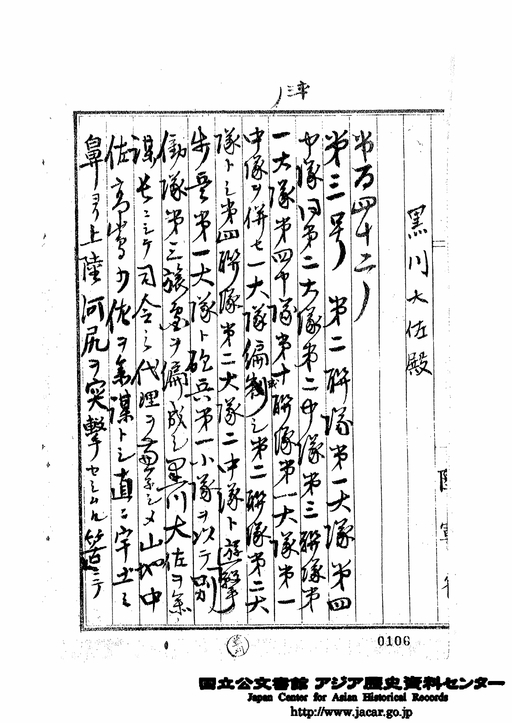 黒川大佐殿
第百四十二
第三号 第二聯隊第一大隊第四
中隊同第二大隊第二中隊第三聯隊第
一大隊第四中隊第十聯隊第一大隊第一
中隊ヲ併セ一大隊編制シ第二聯隊第二大
隊トシ第四聯隊第二大隊二中隊ト遊撃
歩兵第一大隊ト砲兵第一小隊ヲ以テ別
働隊第三旅團ヲ編成シ黒川大佐ヲ参
謀長ニシテ司令長代理ヲ兼シメ山地中
佐高嶋少佐ヲ参謀トシ直ニ宇土ノ
鼻ヨリ上陸河尻ヲ突撃セシム筈ニテ
0106
国立公文書館 アジア歴史資料センター
Japan Center for Asian Historical Records
http://www.jacar.go.jp